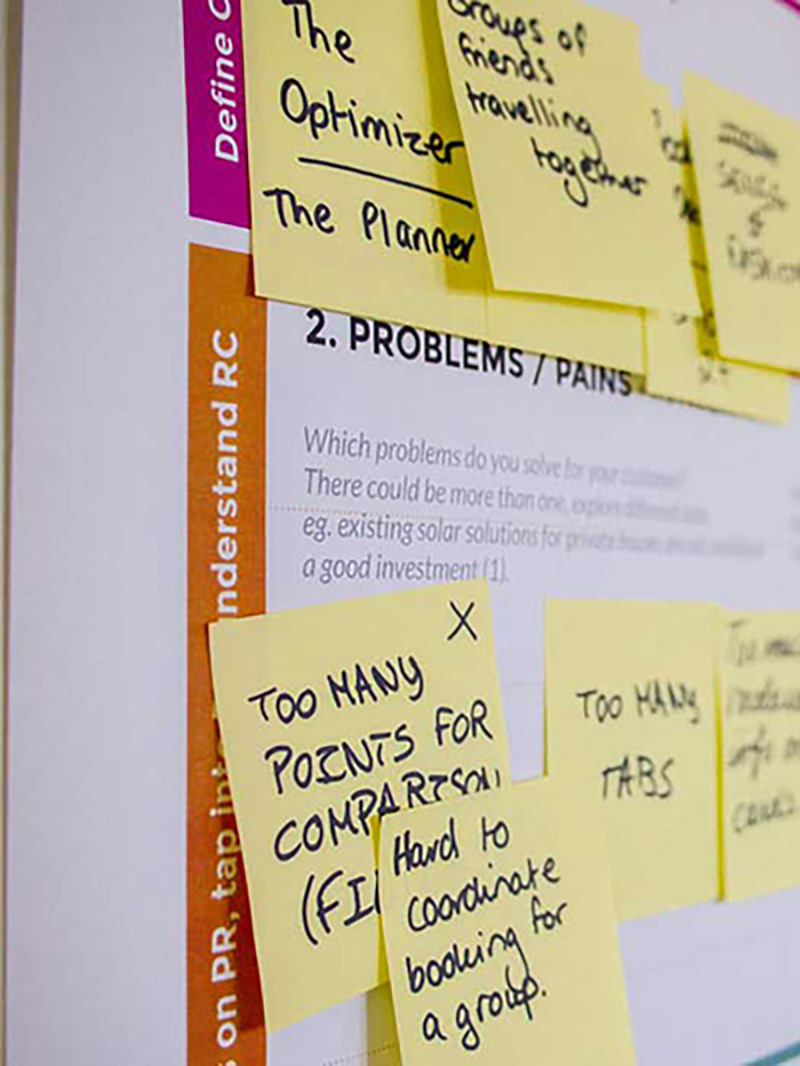 Define C
The
Optimizer
The Planner
Groups of
friends
travelling
together
2. PROBLEMS / PAINS
Which problems do you solve for your customer?
There could be more than one, explore different
eg. existing solar solutions for private houses are not
a good investment (1).
nderstand RC
on PR, tap int
X
TOO MANY
POINTS FOR
COMPARISON
(FI
Hard to
coordinate
booking for
a group.
TOO MANY
TABS